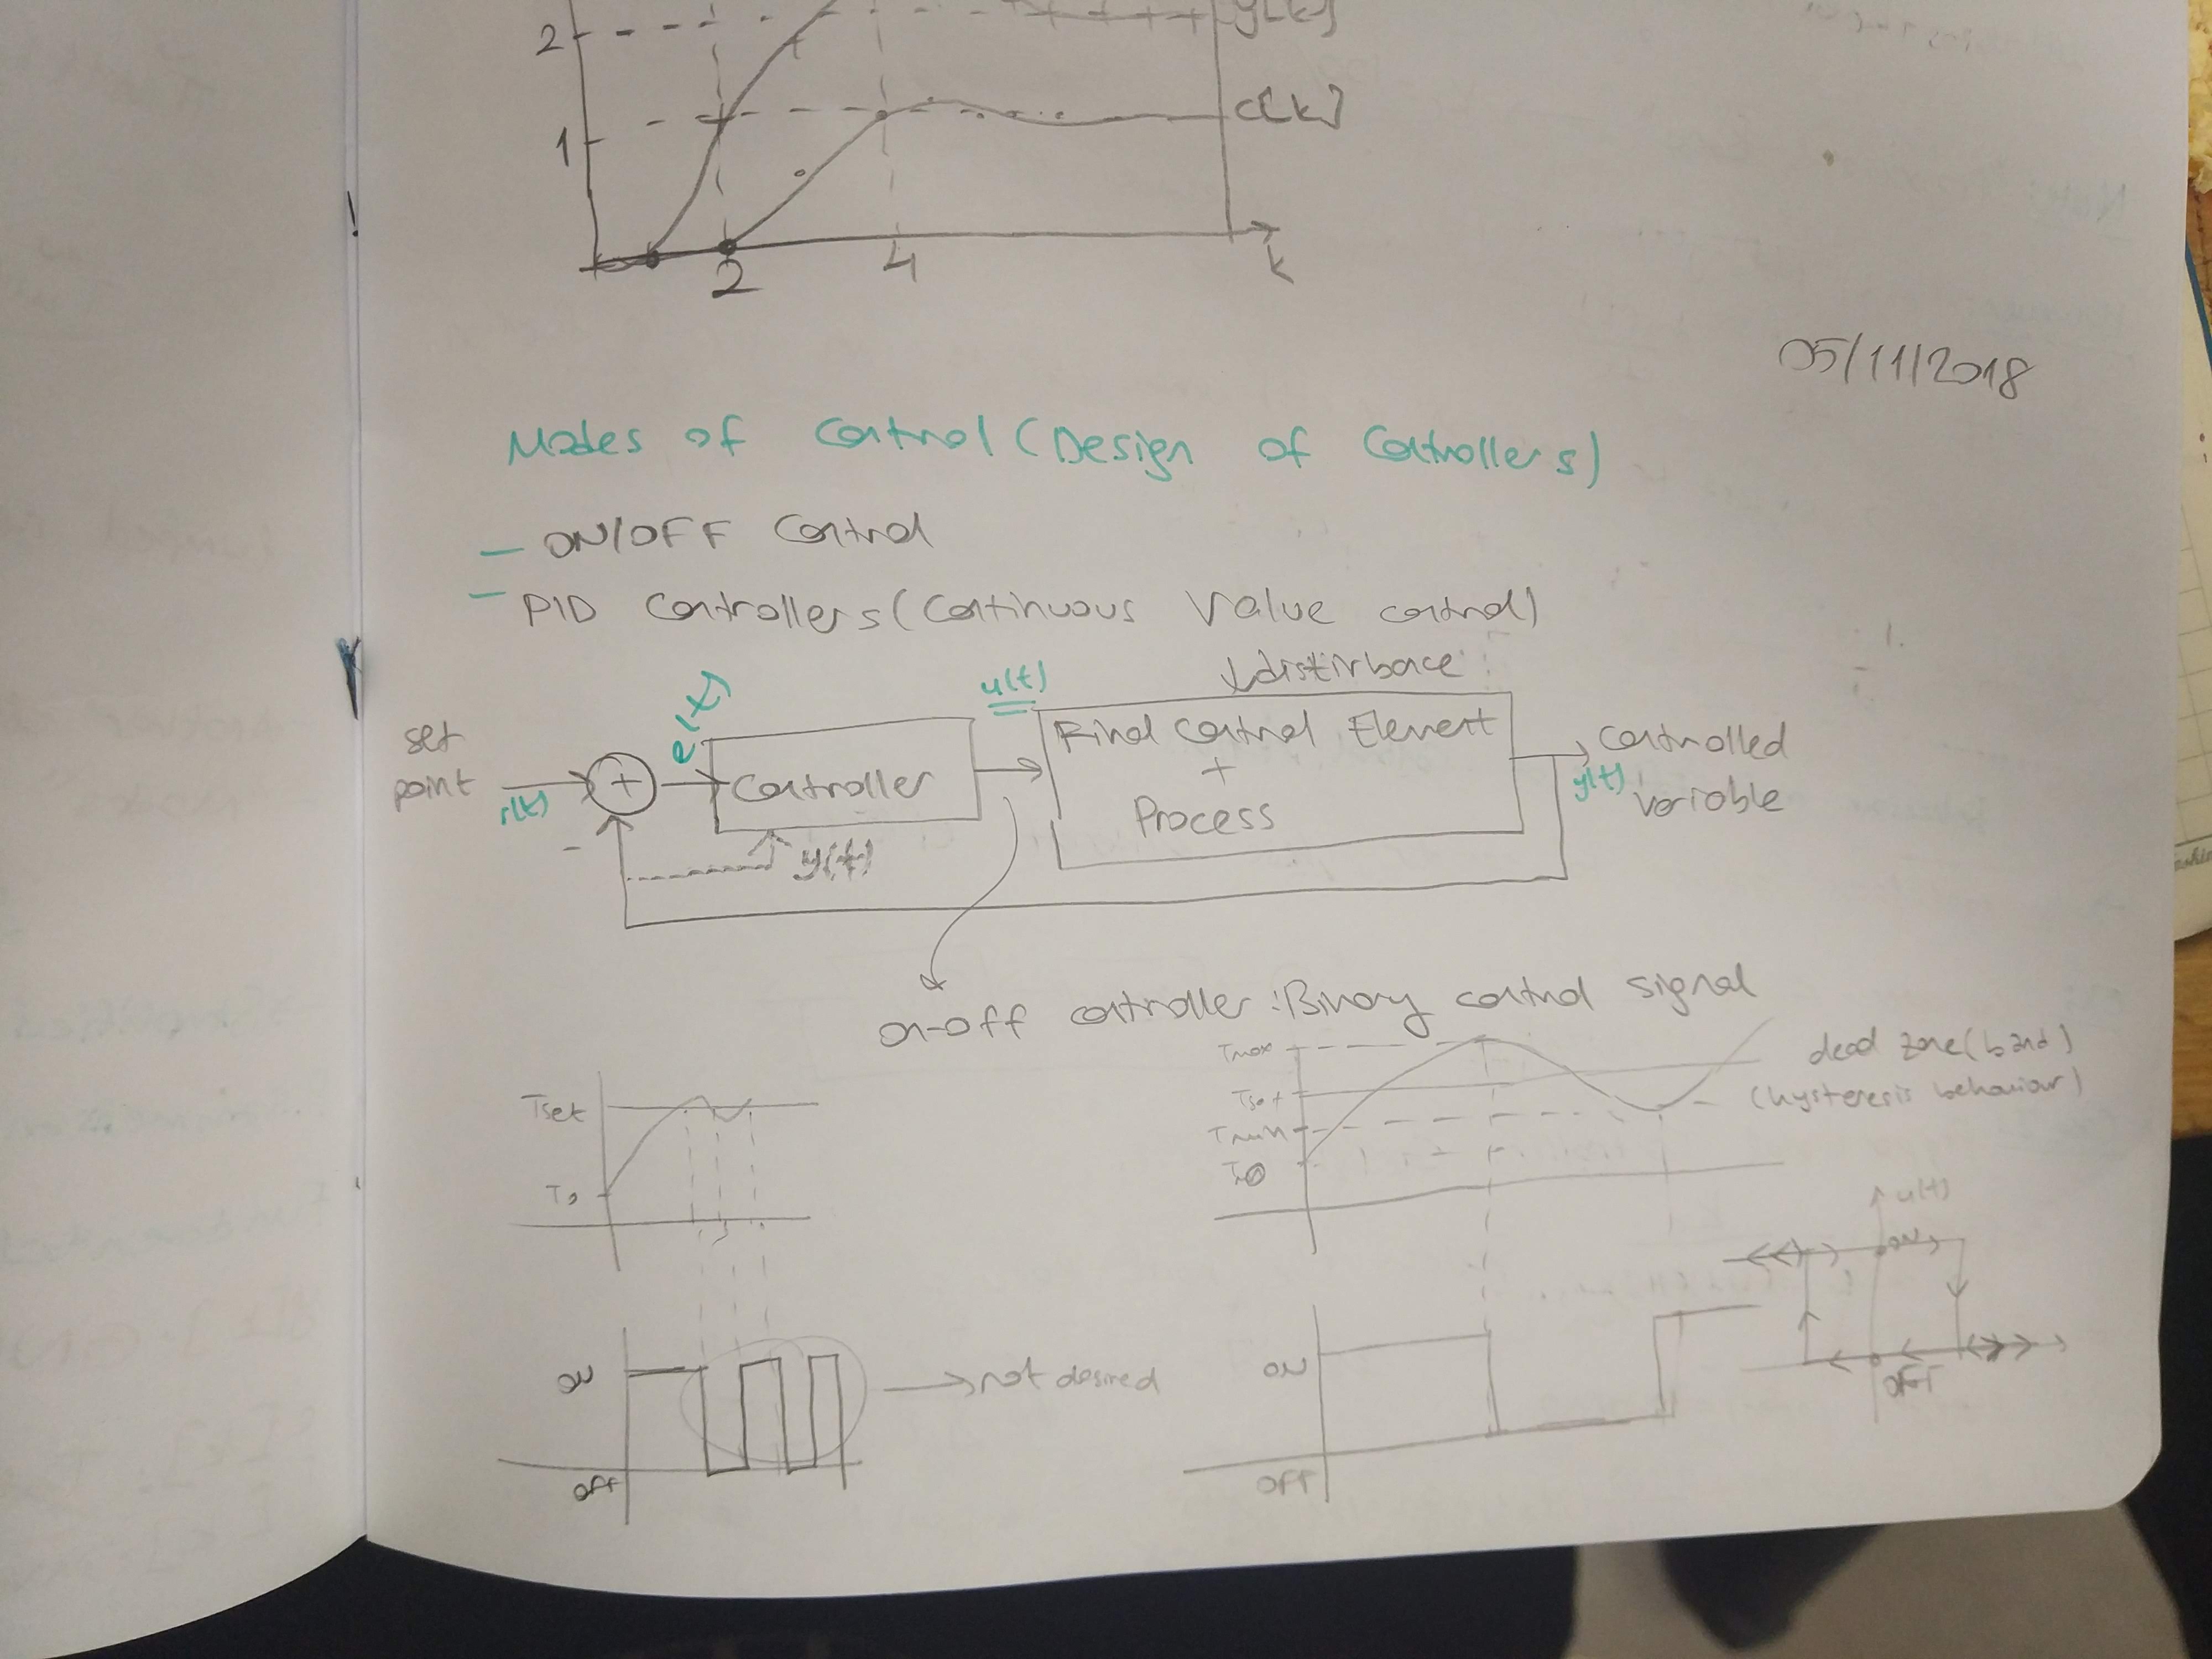 2
y[k]
1
c[k]
2
4
k
05/11/2018
Modes of Control (Design of Controllers)
- ON/OFF Control
- PID Controllers (Continuous Value control)
disturbance
set point
r(t)
+
-
e(t)
Controller
y(t)
u(t)
Final Control Element
+
Process
y(t)
Controlled variable
on-off controller : Binary control signal
Tset
T0
ON
OFF
not desired
Tmax
Tset
Tmin
T0
dead zone (band)
(hysteresis behaviour)
ON
OFF
u(t)
ON
OFF